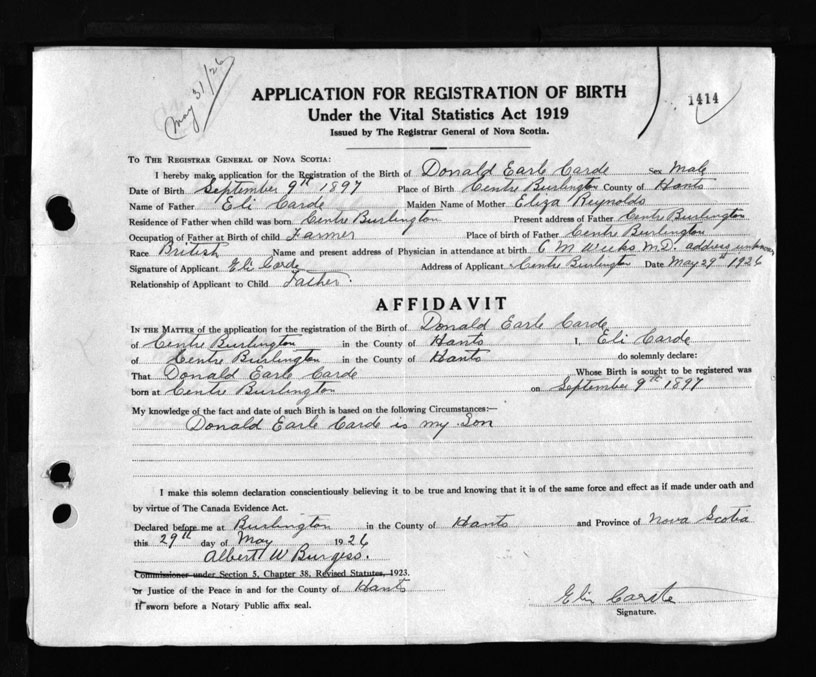 May 31/26
1414
APPLICATION FOR REGISTRATION OF BIRTH
Under the Vital Statistics Act 1919
Issued by The Registrar General of Nova Scotia.
TO THE REGISTRAR GENERAL OF NOVA SCOTIA:
I hereby make application for the Registration of the Birth of Donald Earle Carde Sex Male
Date of Birth September 9th 1897 Place of Birth Centre Burlington County of Hants
Name of Father Eli Carde Maiden Name of Mother Eliza Reynolds
Residence of Father when child was born Centre Burlington Present address of Father Centre Burlington
Occupation of Father at Birth of child Farmer Place of birth of Father Centre Burlington
Race British Name and present address of Physician in attendance at birth C M Weeks M.D. address unknown
Signature of Applicant Eli Carde Address of Applicant Centre Burlington Date May 29th 1926
Relationship of Applicant to Child Father.
AFFIDAVIT
IN THE MATTER of the application for the registration of the Birth of Donald Earle Carde
of Centre Burlington in the County of Hants I, Eli Carde
of Centre Burlington in the County of Hants do solemnly declare:
That Donald Earle Carde Whose Birth is sought to be registered was
born at Centre Burlington on September 9th 1897
My knowledge of the fact and date of such Birth is based on the following Circumstances:—
Donald Earle Carde is my Son
I make this solemn declaration conscientiously believing it to be true and knowing that it is of the same force and effect as if made under oath and
by virtue of The Canada Evidence Act.
Declared before me at Burlington in the County of Hants and Province of Nova Scotia
this 29th day of May 1926
Albert W Burgess.
Commissioner under Section 5, Chapter 38, Revised Statutes, 1923.
or Justice of the Peace in and for the County of Hants
If sworn before a Notary Public affix seal.
Eli Carde
Signature.